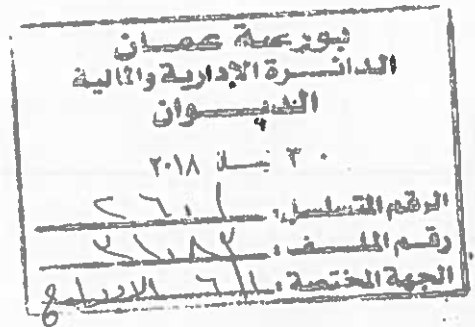 بورصة عمان
الدائرة الإدارية والمالية
الديوان
٣٠ نيسان ٢٠١٨
الرقم المتسلسل: ٢٦٠١
رقم الملف:
الجهة المختصة: